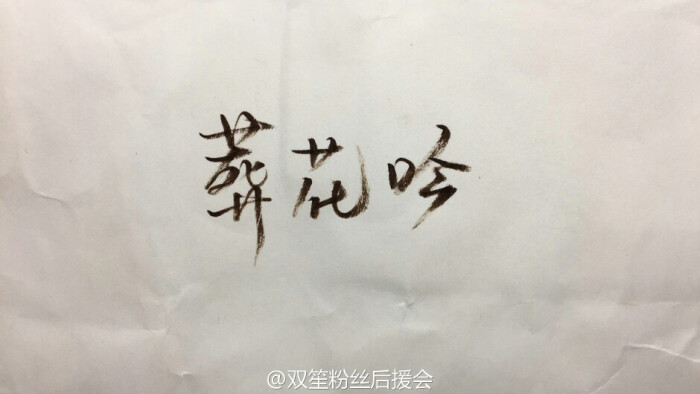 葬花吟
@双笙粉丝后援会